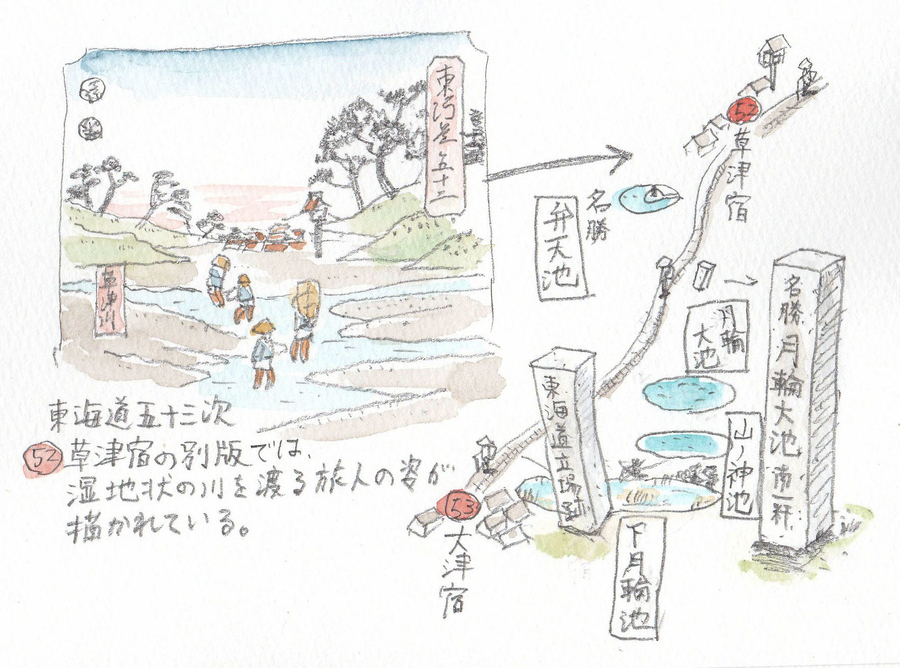 東海道五十三次
草津川
東海道五十三次
52 草津宿の別版では、
湿地状の川を渡る旅人の姿が
描かれている。
52
草津宿
名勝
弁天池
月輪
大池
名勝月輪大池南一粁
東海道立場跡
山ノ神池
下月輪池
53
大津宿